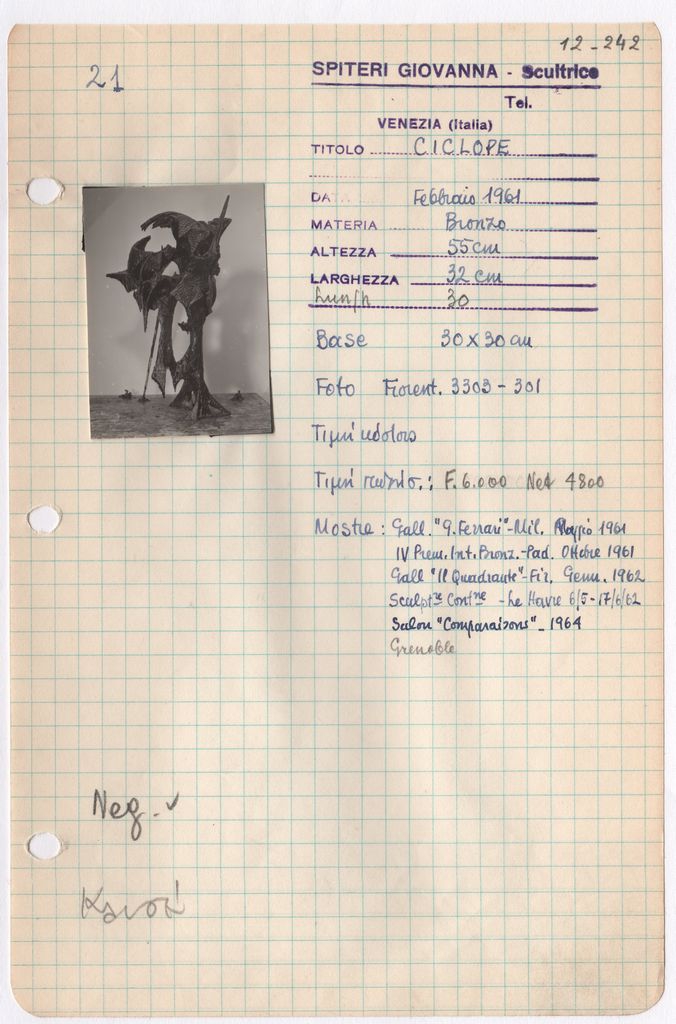 12-242
21
SPITERI GIOVANNA - Scultrice
Tel.
VENEZIA (Italia)
TITOLO CICLOPE
DATA Febbraio 1961
MATERIA Bronzo
ALTEZZA 55 cm
LARGHEZZA 32 cm
Lungh 30
Base 30 x 30 cm
Foto Fiorent. 3303 - 301
Τιμή
Τιμή F. 6.000 Net 4800
Mostre : Gall. "G. Ferrari" - Mil. Maggio 1961
IV Prem. Int. Bronz. - Pad. Ottobre 1961
Gall "Il Quadrante" - Fir. Genn. 1962
Sculptre Contne - Le Havre 6/5 - 17/6/62
Salon "Comparaisons" - 1964
Grenoble
Neg. ✓